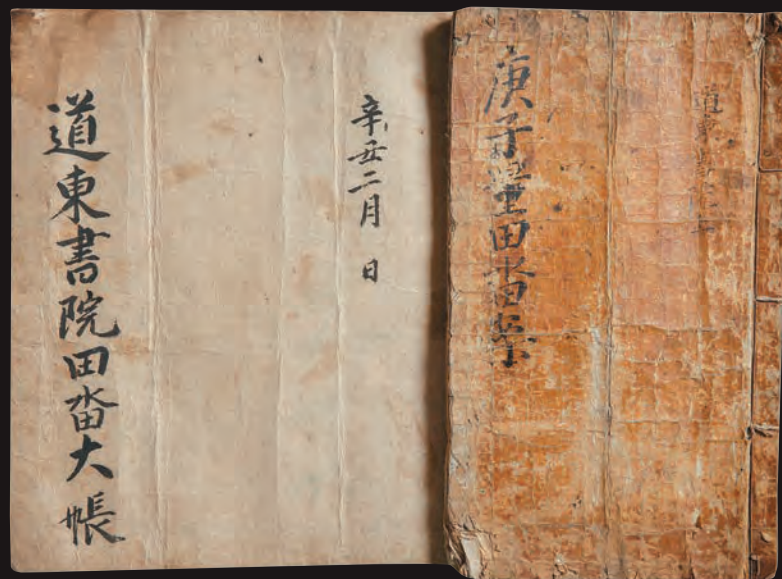 道東書院
庚子量田畓案
辛丑二月 日
道東書院田畓大帳